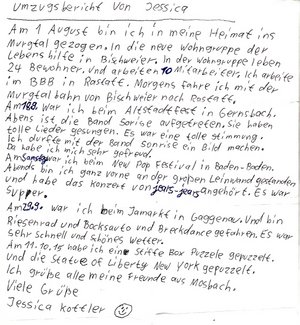 Umzugsbericht von Jessica
Am 1 August bin ich in meine Heimat ins
Murgtal gezogen. In die neue wohngruppe der
Lebens hilfe in Bischweier. In der wohngruppe leben
24 Bewohner. Und arbeiten 10 Mitarbeiter. Ich arbeite
im BBB in Rastatt. Morgens fahre ich mit der
Murgtalbahn von Bischweier nach Rastatt.
Am war ich beim Altstadtfest in Gernsbach.
Abens ist die Band Sorise aufgetreten. Sie haben
tolle Lieder gesungen. Es war eine tolle stimmung.
Ich durfte mit der Band sonrise ein Bild machen.
Da habe ich mich sehr gefreud.
Am Samstag war ich beim New Pop Festival in Baden-Baden.
Abends bin ich ganz vorne an der großen Leinwand gestanden
und habe das konzert von angehört. Es war
Supper.
Am 29.9. war ich beim Jamarkt in Gaggenau. Und bin
Riesenrad und Bocksauto und Breckdance gefahren. Es war
sehr schnell und schönes wetter.
Am 11.10.15 habe ich eine Stiffe Box Puzzele gepuzzelt.
Und die State of Liberty New York gepuzzelt.
Ich grüße alle meine Freunde aus Mosbach.
Viele Grüße
Jessica Kottler